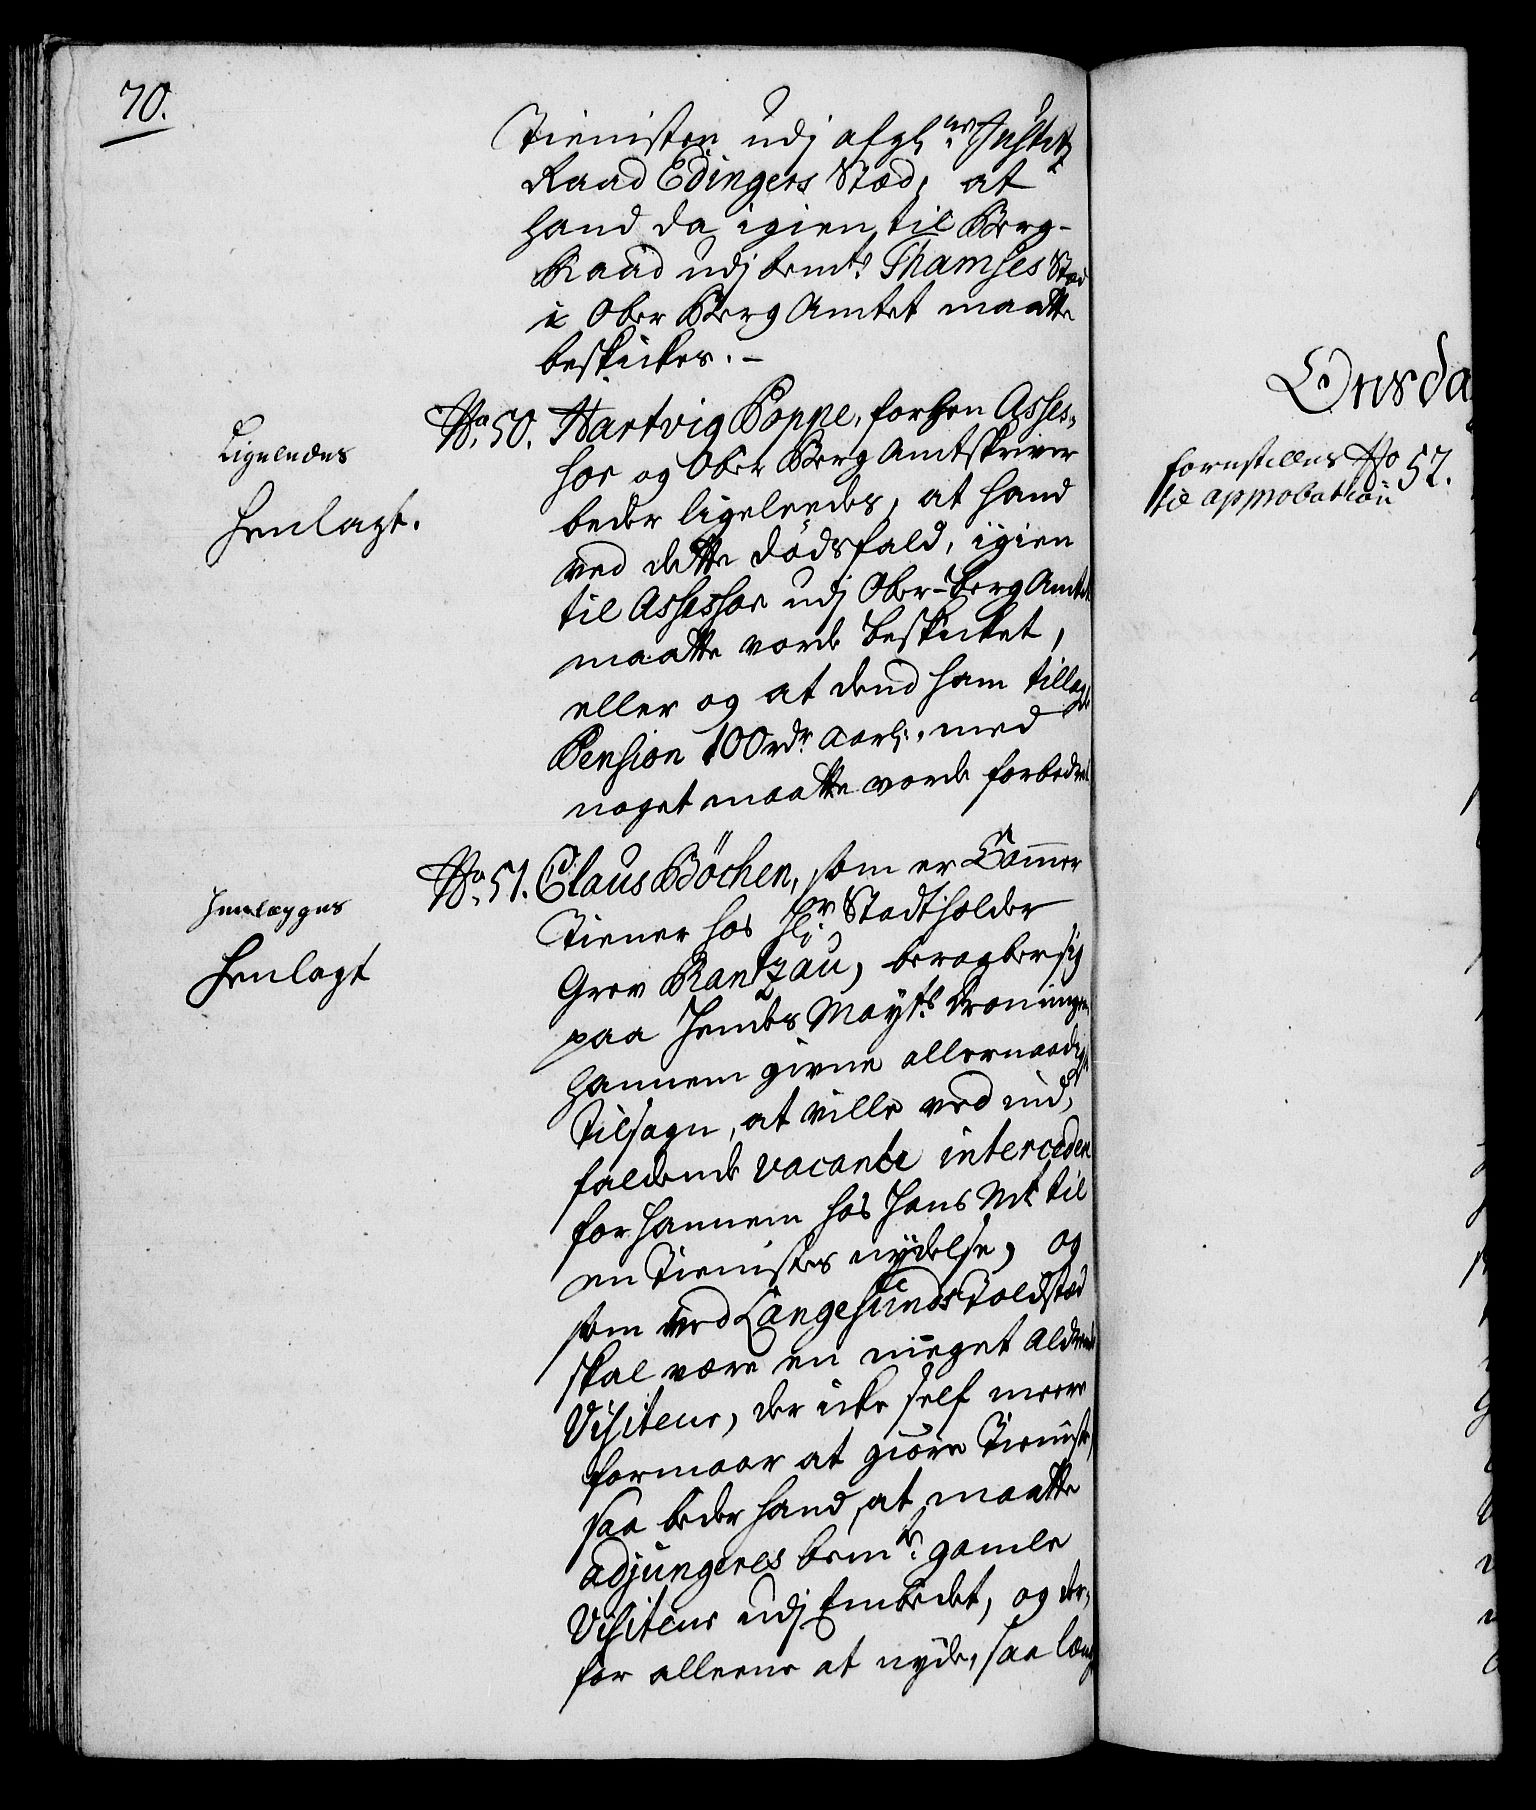 70.
Tienisten udj afgl: Justitz
Raad Edingers Stæd, at
hand da igien til Berg-
Raad udj bemte Thamses Stæd
i Ober Berg Amtet maatte
beskickes. –
Ligeledes
Henlagt.
No. 50. Hartvig Poppe, forhen Asses-
sor og Ober Berg Amtskriver
beder ligeleedes, at hand
ved dette dødsfald, igien
til Assessor udj Ober-Berg Amtet
maatte vorde beskicket,
eller og at dend ham tillagde
Pension 100 rdr aarl:, med
noget maatte vorde forbedret
Henlægges
Henlagt
No. 51. Claus Böchen, som er Cammer
Tiener hos Hr Stadtholder
Grev Rantzau, beraaber sig
paa Hendes Mayts Dronningen
hannem givne allernaadigste
Tilsagn, at ville ved ind-
faldende vacante intercedere
for hannem hos Hans Mt til
en Tienistes nydelse, og
som ved Langesunds Toldstæd
skal være en meget Aldrende
Visiteur, der icke self meere
formaar at giøre Tieniste,
saa beder hand, at maatte
adjungeres bemte gamle
Visiteur udj Embedet, og der-
for alleene at nyde, saa længe
Onsda
forestilles
til approbation
No 52.